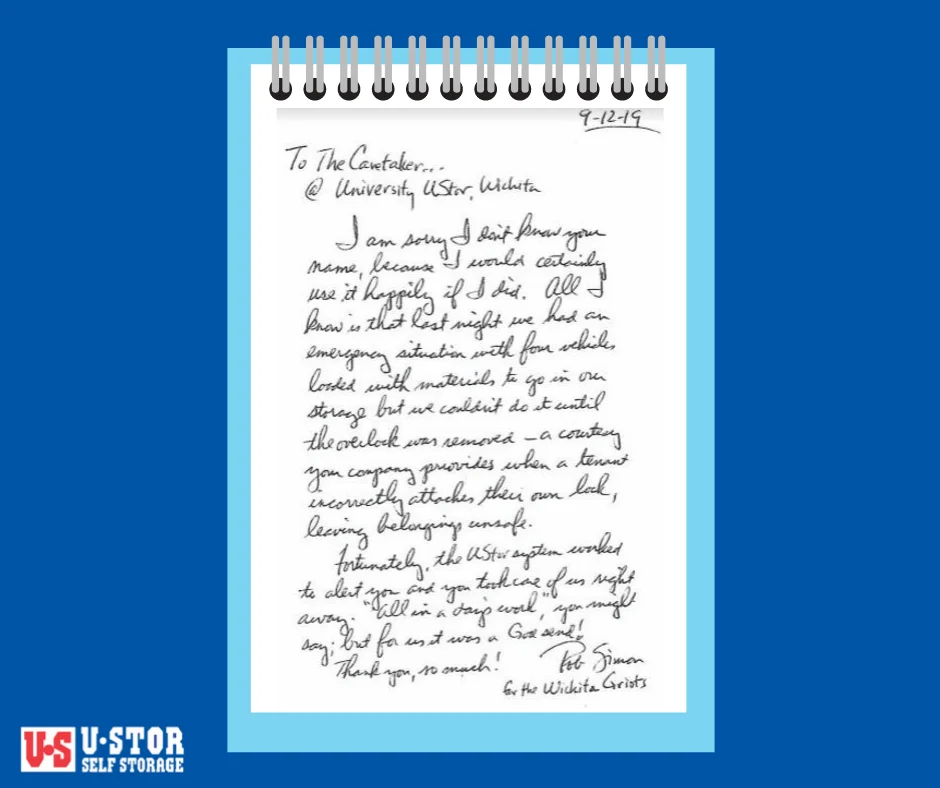 9-12-19
To The Caretaker...
@ University UStor, Wichita
I am sorry I don't know your
name, because I would certainly
use it happily if I did. All I
know is that last night we had an
emergency situation with four vehicles
loaded with materials to go in our
storage but we couldn't do it until
the overlock was removed – a courtesy
your company provides when a tenant
incorrectly attaches their own lock,
leaving belongings unsafe.
Fortunately, the UStor system worked
to alert you and you took care of us right
away. "All in a day's work," you might
say; but for us it was a God send!
Thank you, so much! Rob Simon
for the Wichita Griots
U·S U·STOR
SELF STORAGE